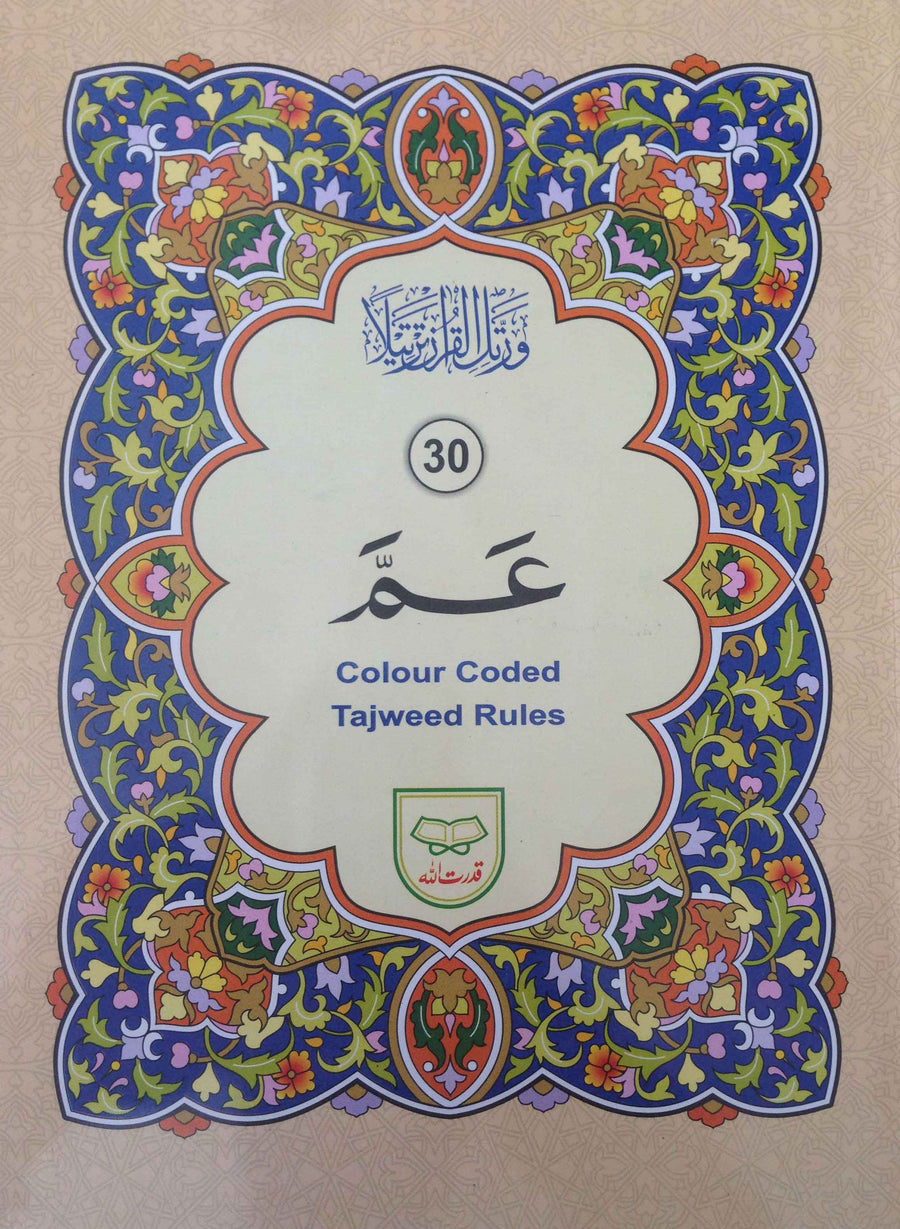 وَرَتِّلِ الْقُرْاٰنَ تَرْتِيْلًا
30
عَمَّ
Colour Coded
Tajweed Rules
قدرت الله